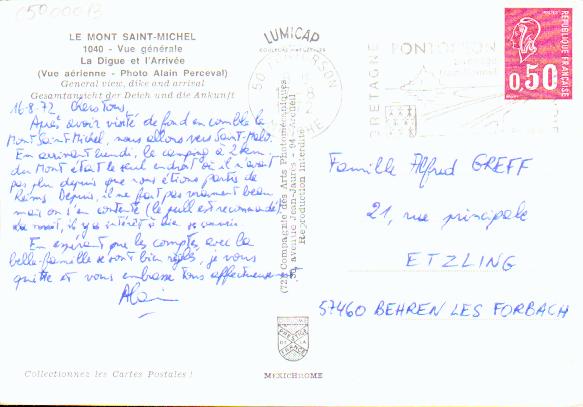 C5000013
LE MONT SAINT-MICHEL
1040 - Vue générale
La Digue et l'Arrivée
(Vue aérienne - Photo Alain Perceval)
General view, dike and arrival
Gesamtansicht der Deich und die Ankunft
16.8.72 Chers Tous,
Après avoir visité de fond en comble le
Mont Saint Michel, nous allons vers Saint-Malo.
En arrivant lundi, le camping à 2 km
du Mont était le seul endroit où il n'avait
pas plu depuis que nous étions partis de
Reims. Depuis, il ne fait pas vraiment beau
mais on s'en contente (le pull est recommandé)
La nuit, il y a intérêt à bien se couvrir
En espérant que les comptes avec la
belle-famille se sont bien réglés, je vous
quitte et vous embrasse tous affectueusement
Alain
Collectionnez les Cartes Postales !
LUMICAP
(72) Compagnie des Arts Photomécaniques
, avenue Jean-Jaurès, 94 - Arcueil
Reproduction interdite
PRESTIGE
DE LA
FRANCE
MEXICHROME
50 PONTORSON
MANCHE
PONTORSON
BRETAGNE
REPUBLIQUE FRANCAISE
0,50
Famille Alfred GREFF
21, rue principale
ETZLING
57460 BEHREN LES FORBACH